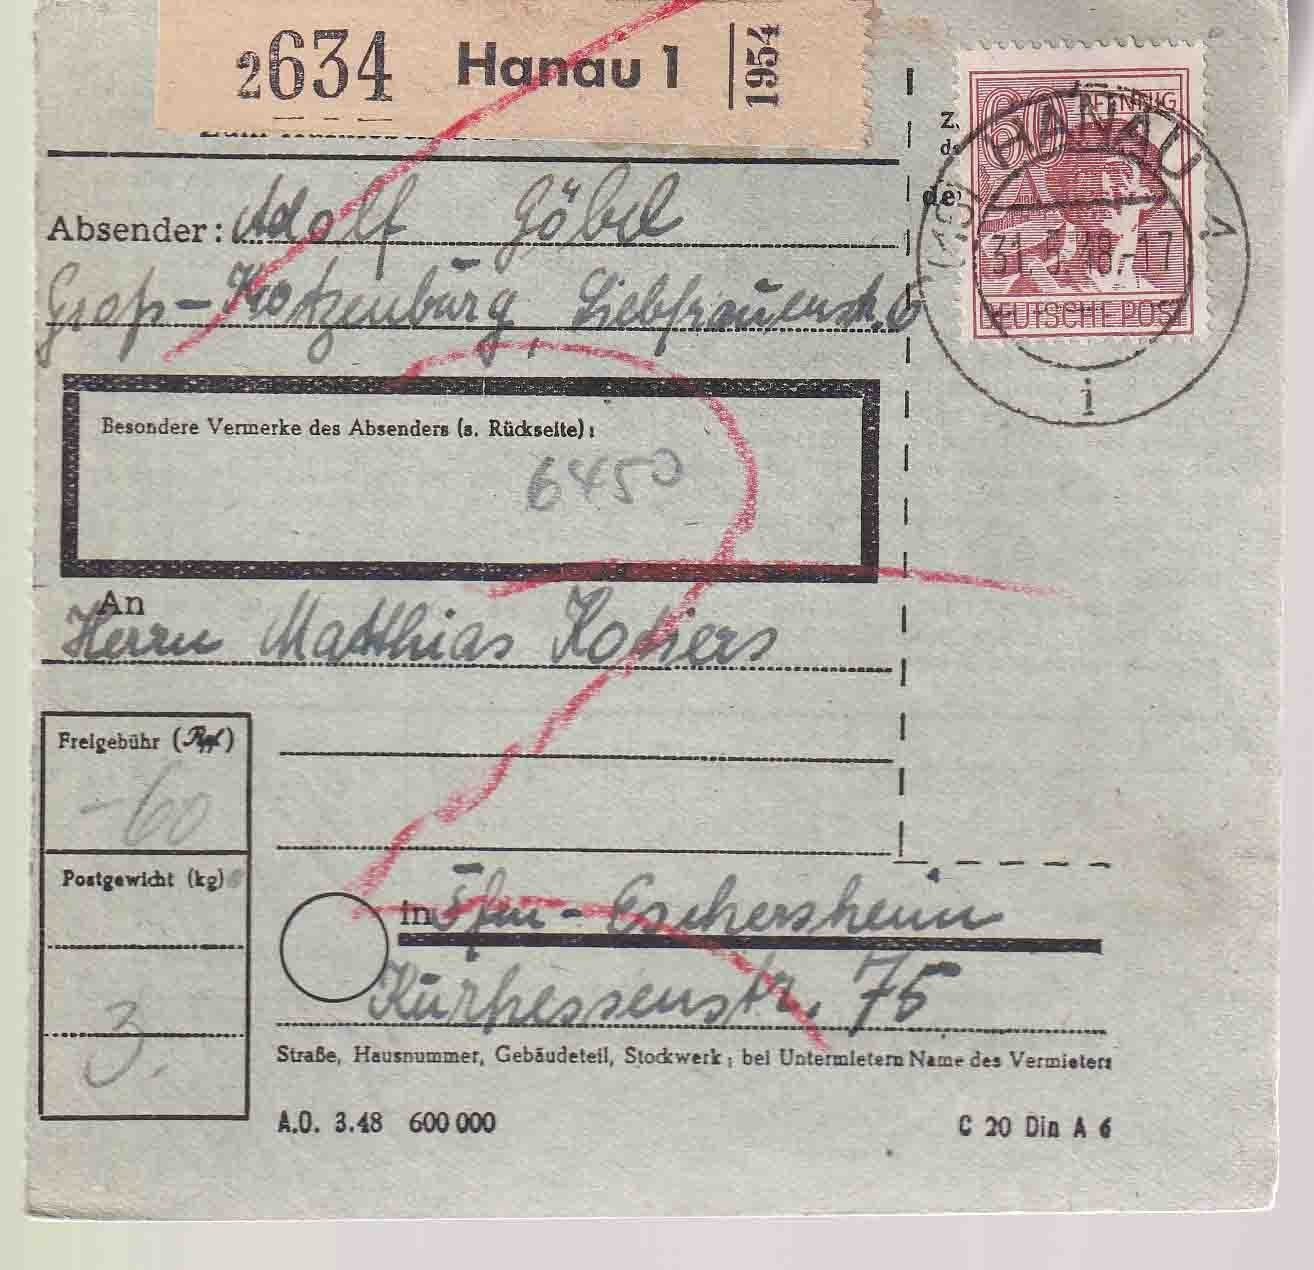 2634 Hanau 1 1954
60 PFENNIG
DEUTSCHE POST
HANAU 1
31.5.48.-17
i
Absender: Adolf Göbel
Groß-Krotzenburg, Liebfrauenstr. 6
Besondere Vermerke des Absenders (s. Rückseite):
6450
An
Herrn Matthias
Freigebühr (Rpf)
-60
Postgewicht (kg)
3.
in Ffm - Eschersheim
Kurhessenstr. 75
Straße, Hausnummer, Gebäudeteil, Stockwerk; bei Untermietern Name des Vermieters
A.O. 3.48 600 000
C 20 Din A 6